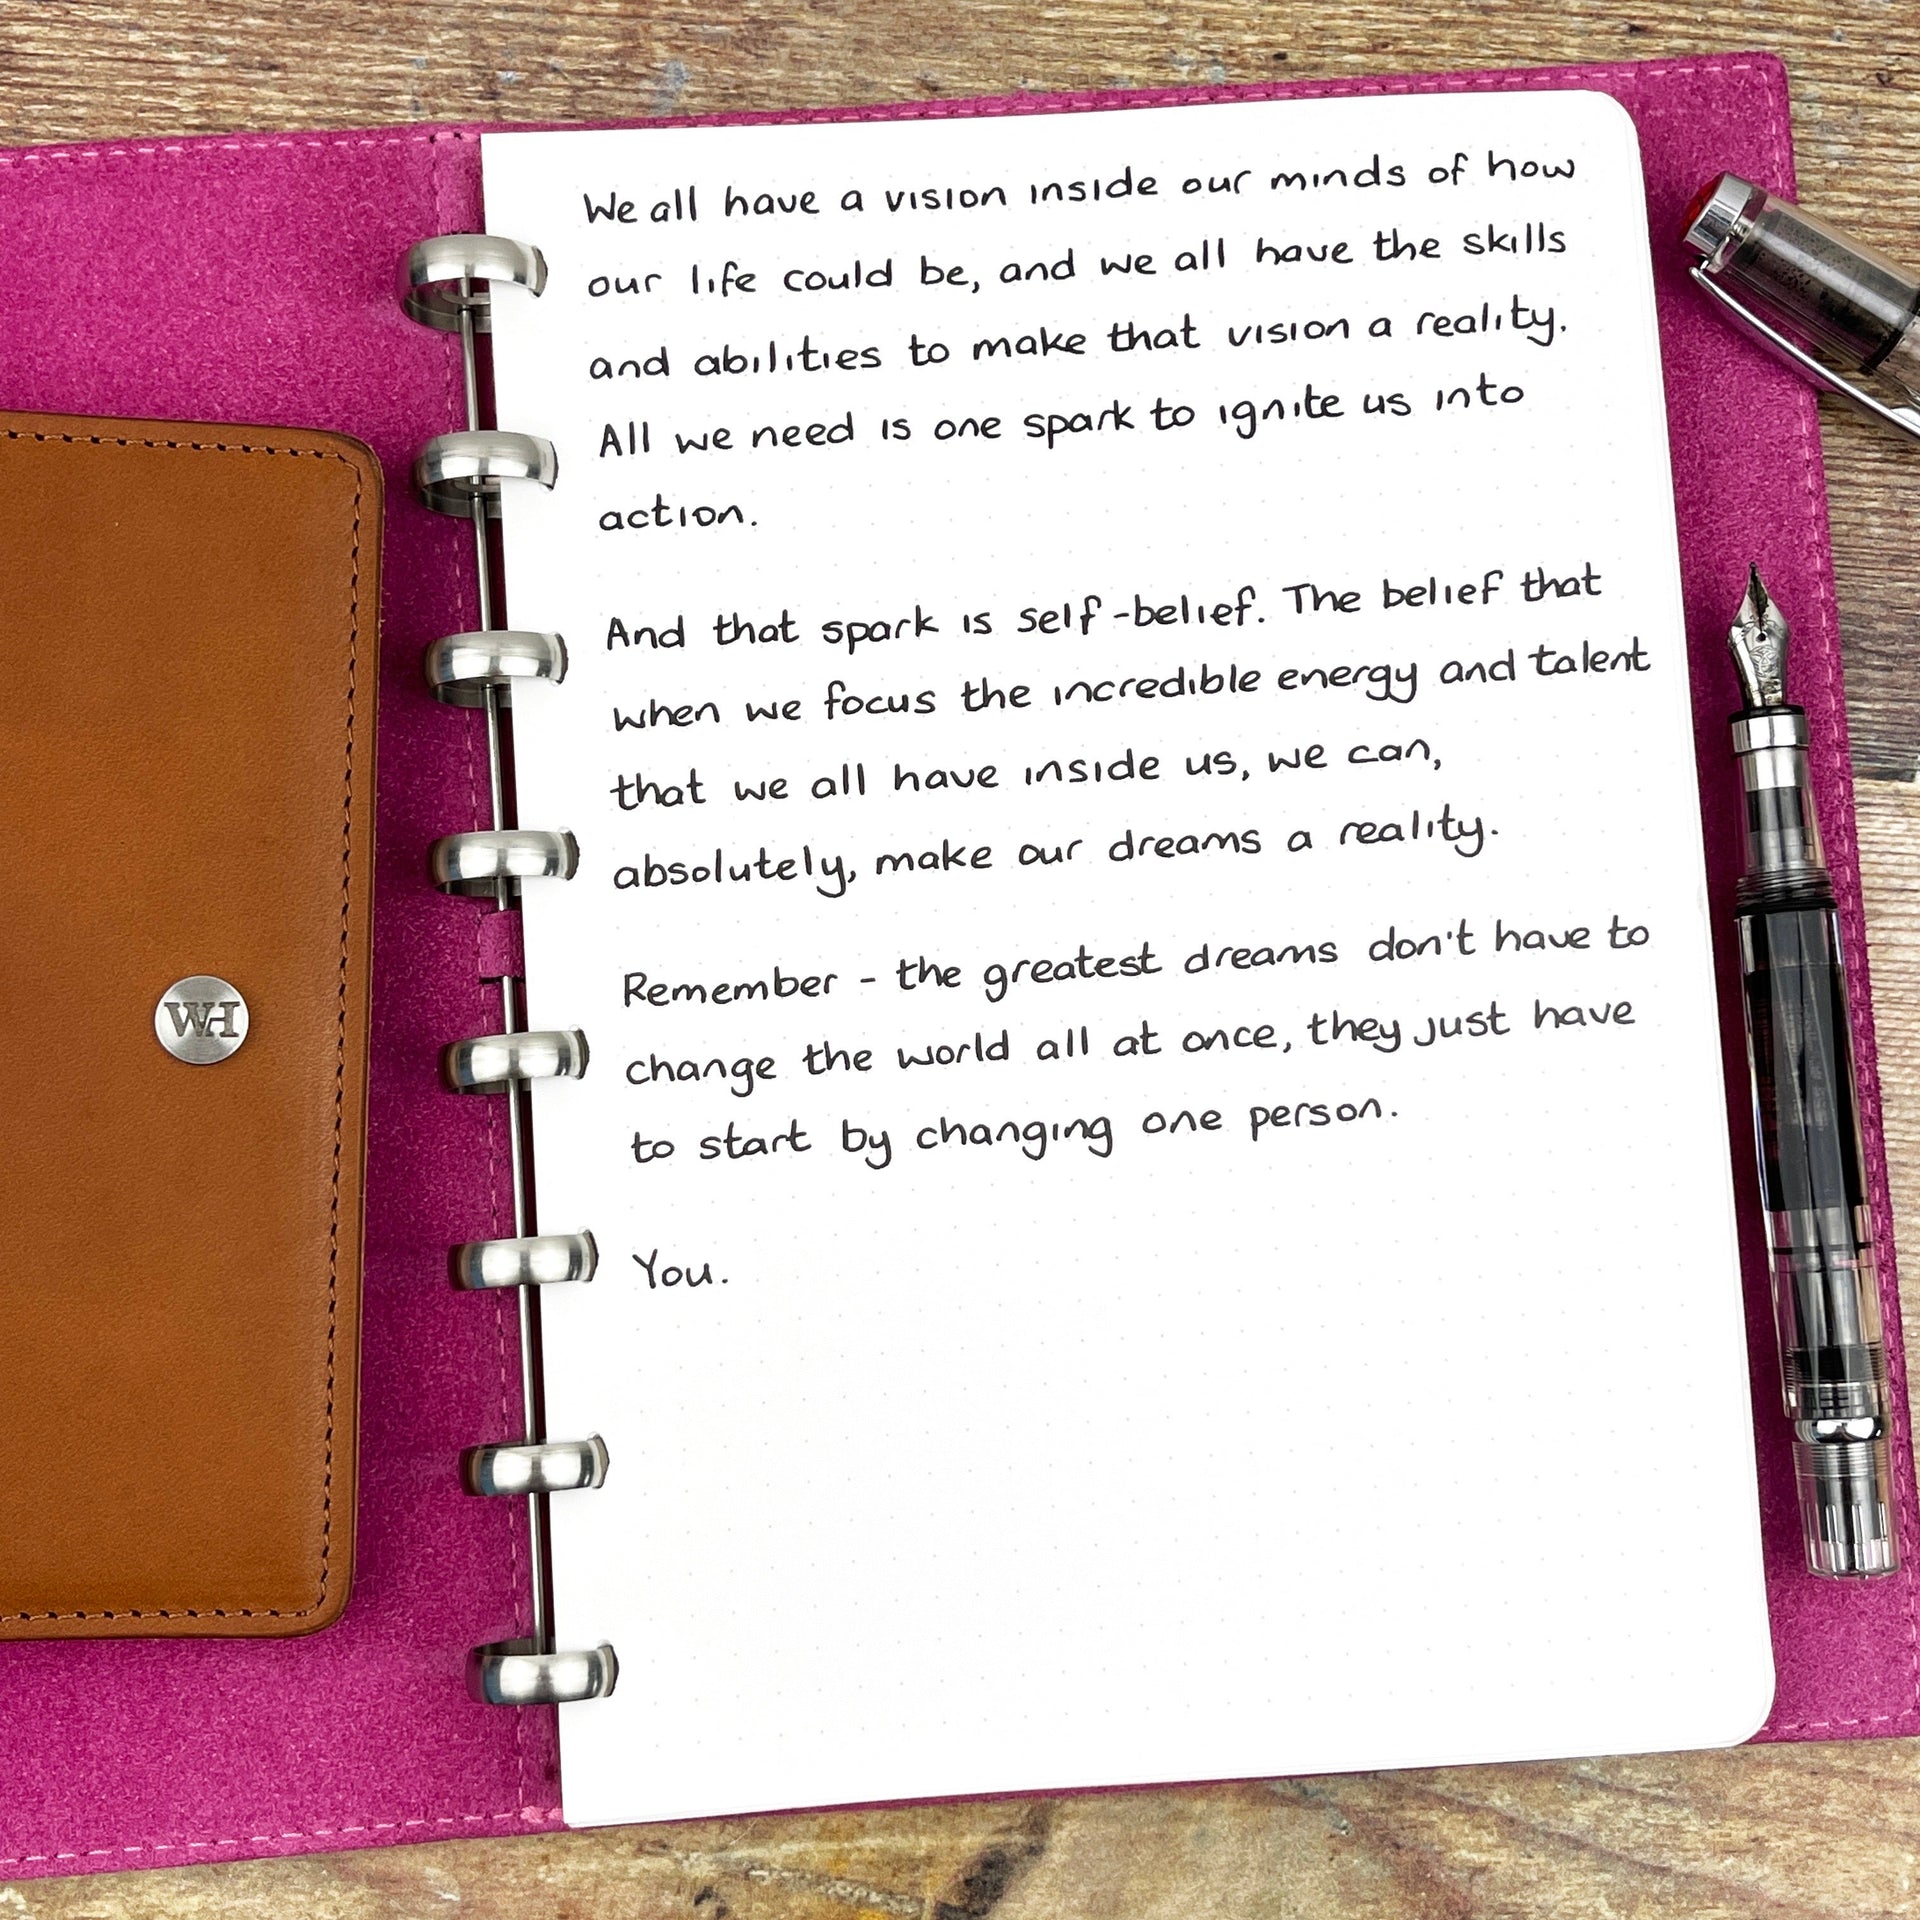 We all have a vision inside our minds of how
our life could be, and we all have the skills
and abilities to make that vision a reality.
All we need is one spark to ignite us into
action.
And that spark is self-belief. The belief that
when we focus the incredible energy and talent
that we all have inside us, we can,
absolutely, make our dreams a reality.
Remember - the greatest dreams don't have to
change the world all at once, they just have
to start by changing one person.
You.
WH